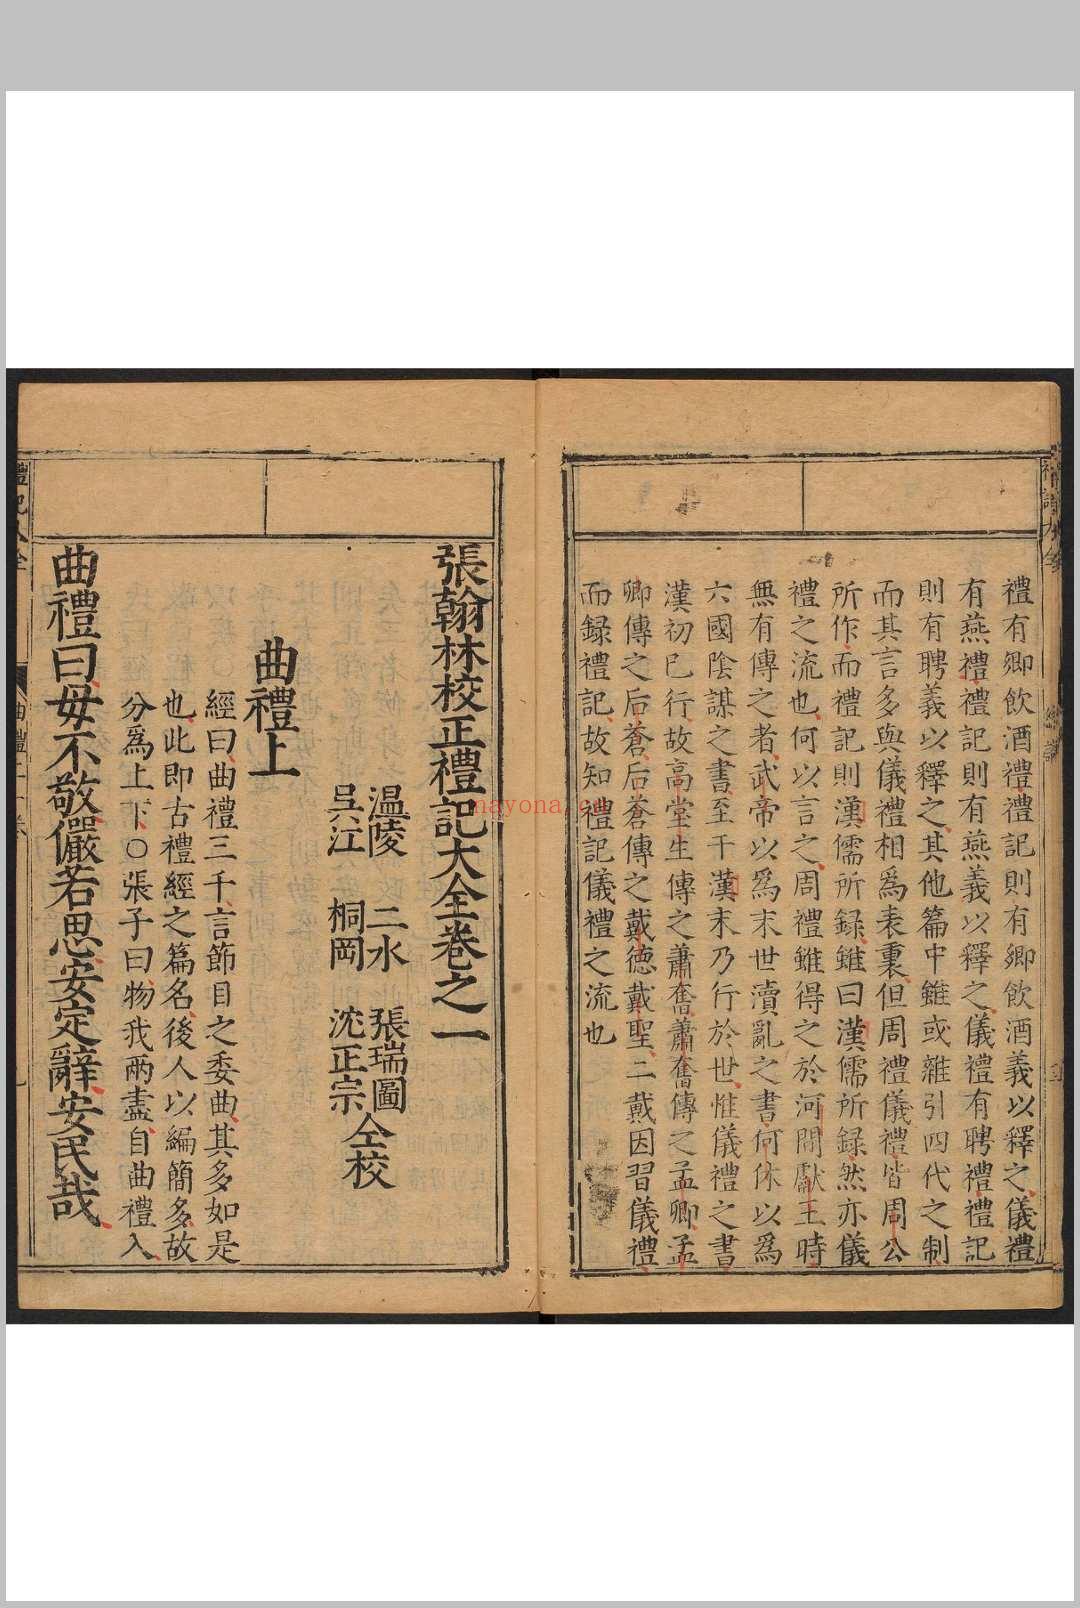 禮有鄉飲酒禮禮記則有鄉飲酒義以釋之儀禮
有燕禮禮記則有燕義以釋之儀禮有聘禮禮記
則有聘義以釋之其他篇中雖或雜引四代之制
而其言多與儀禮相為表裏但周禮儀禮皆周公
所作而禮記則漢儒所録雖曰漢儒所録然亦儀
禮之流也何以言之周禮雖得之於河間獻王時
無有傳之者武帝以為末世瀆亂之書何休以為
六國陰謀之書至于漢末乃行於世惟儀禮之書
漢初已行故高堂生傳之蕭奮蕭奮傳之孟卿孟
卿傳之后蒼后蒼傳之戴德戴聖二戴因習儀禮
而録禮記故知禮記儀禮之流也
張翰林校正禮記大全卷之一
溫陵 二水 張瑞圖
吳江 桐岡 沈正宗
仝校
曲禮上
經曰曲禮三千言節目之委曲其多如是
也此即古禮經之篇名後人以編簡多故
分為上下○張子曰物我兩盡自曲禮入
曲禮曰毋不敬儼若思安定辭安民哉
nayona.cn